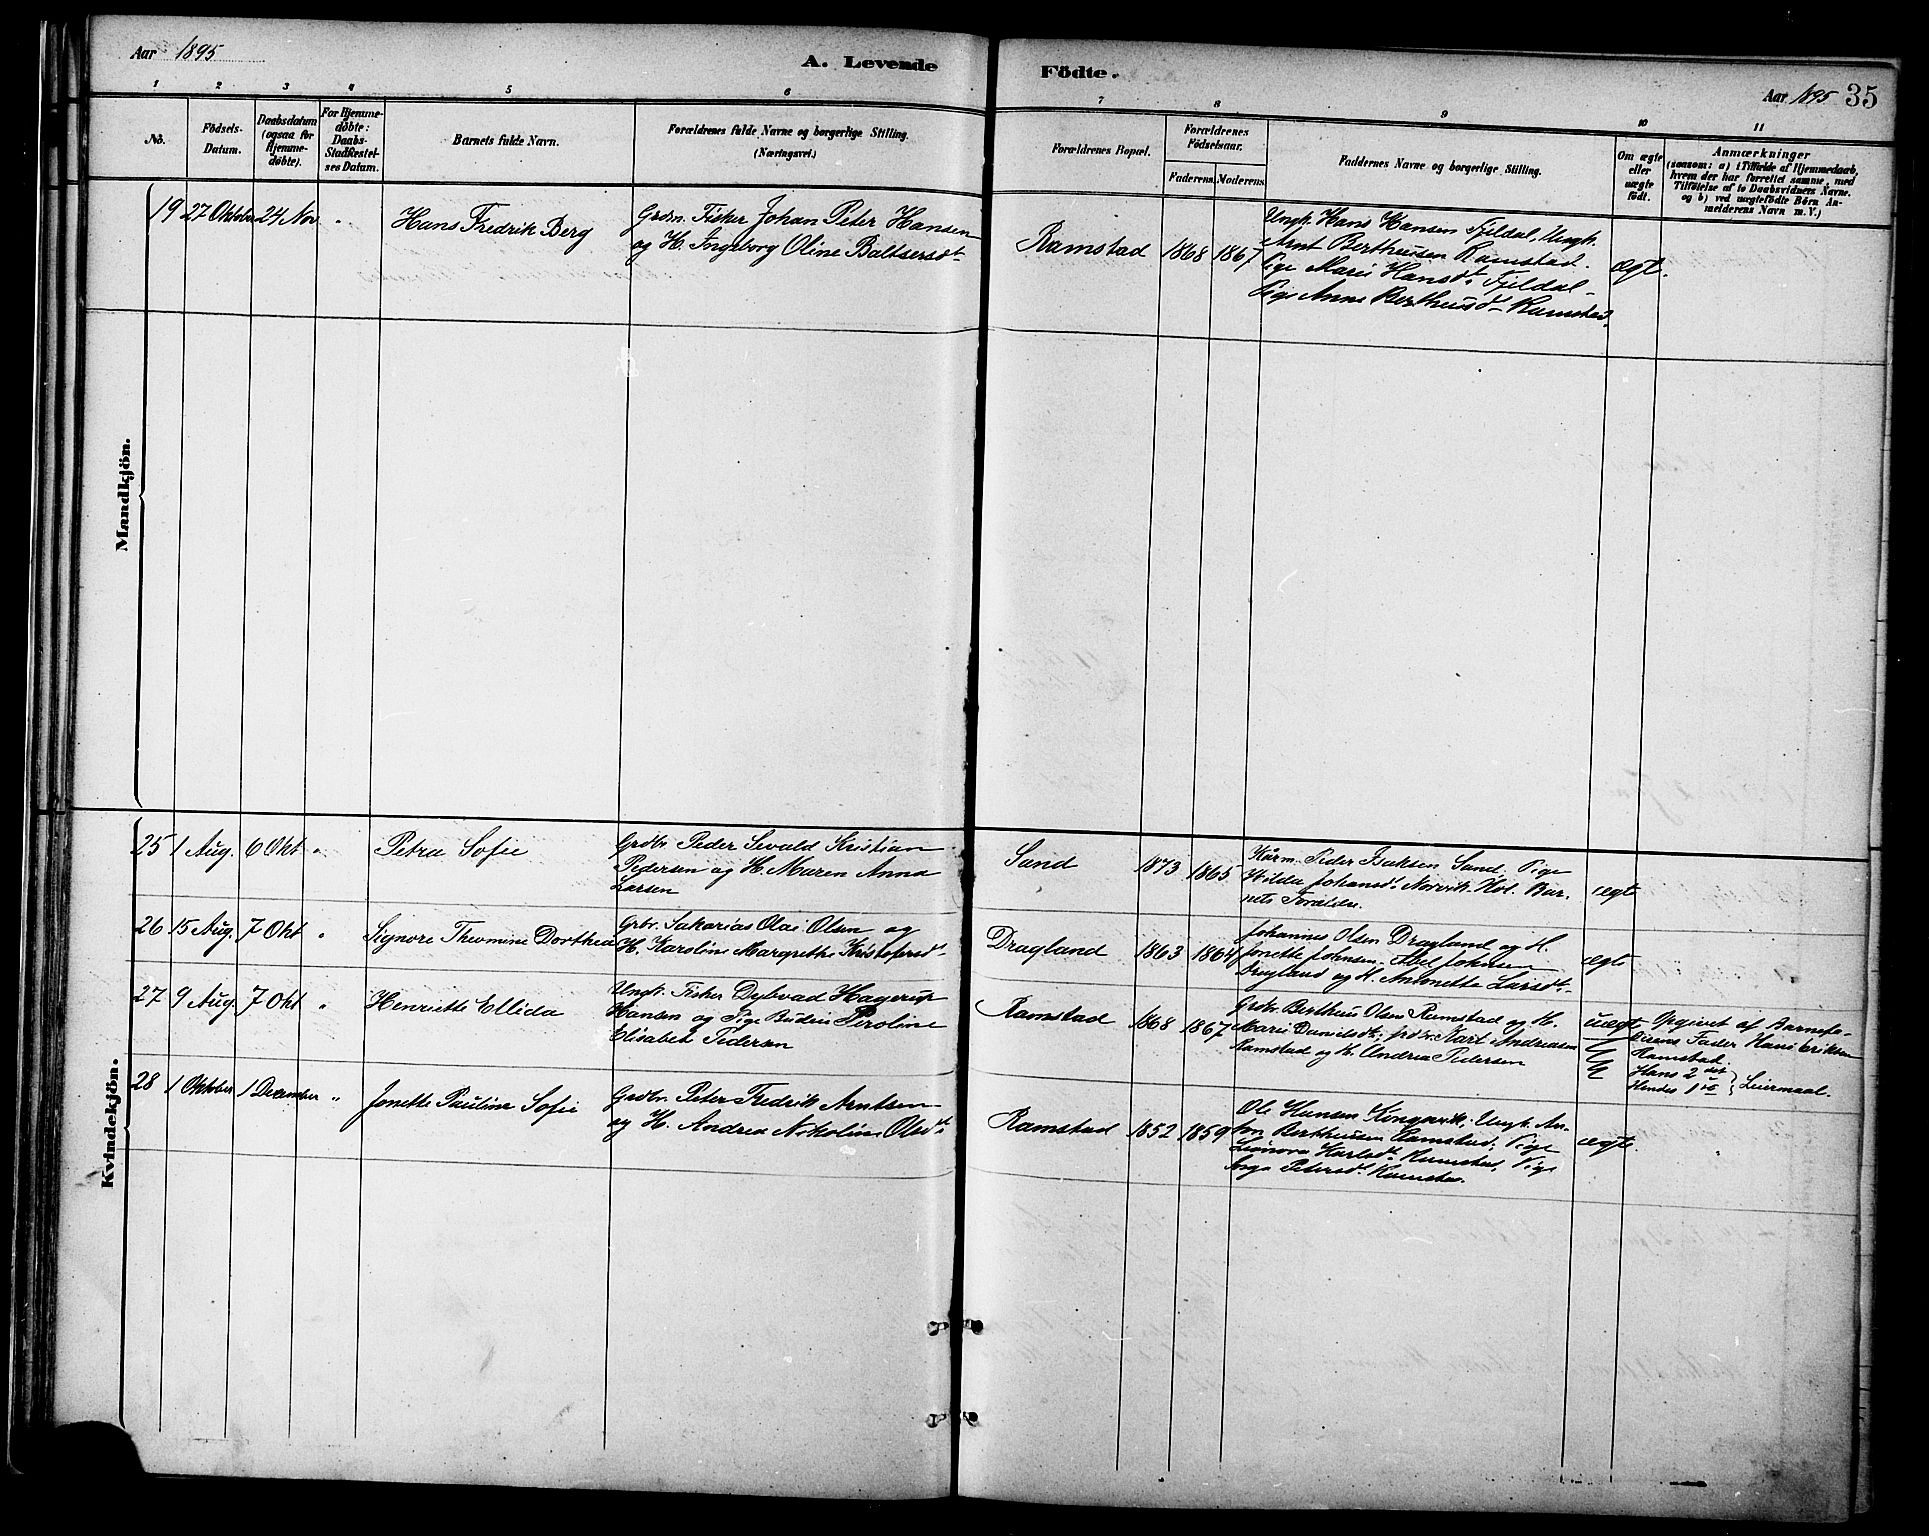 Aar 1895
A. Levende
Födte.
Aar 1895 35
1 2 3 4 5 6 7 8 9 10 11
No.
Födsels-
Datum.
Daabsdatum
(ogsaa for
Hjemme-
døbte).
For Hjemme-
døbte:
Daabs-
Stadfæstel-
ses Datum.
Barnets fulde Navn.
Forældrenes fulde Navne og borgerlige Stilling.
(Næringsvei.)
Forældrenes Bopæl.
Forældrenes
Födselsaar.
Faderens. Moderens.
Faddernes Navne og borgerlige Stilling.
Om ægte
eller
uægte
født.
Anmærkninger
(saasom: a) i Tilfælde af Hjemmedaab,
hvem der har forrettet samme, med
Tilføielse af to Daabsvidners Navne,
og b) ved uægtefødte Börn An-
melderens Navn m. V.)
Mandkjön.
19 27 Oktober 24 Nov "
Hans Fredrik Berg
Grdm. Fisker Johan Peter Hansen
og H. Ingeborg Oline Baltsersdt
Ramstad 1868 1867
Ungk. Hans Hansen Fjeldal, Ungk.
Arnt Bertheusen Ramstad.
Pige Marei Hansdt Fjeldal -
Pige Anne Bertheusdt Ramstad.
ægt.
Kvindekjön.
25 1 Aug. 6 Okt "
Petra Sofie
Grdbr. Peder Sevald Kristian
Pedersen og H. Maren Anna
Larsen
Sand 1873 1865
Kårm. Peder Isaksen Sand, Pige
Hilda Johansdt Norvik. Hol. Bar-
nets Forældre.
ægte
26 15 Aug. 7 Okt "
Signore Theomine Dorthea
Grbr. Sakarias Olai Olsen og
H. Karoline Margrethe Kristofersdt
Dragland 1863 1864
Johannes Olsen Dragland og H.
Jonette Johnsen. Abel Johnsen
Dragland og H. Antonette Larsdt.
ægte
27 9 Aug. 7 Okt "
Henriette Ellida
Ungk. Fisker Dybvad Hagerup
Hansen og Pige Budei Peroline
Elisabeth Pedersen
Ramstad 1868 1867
Grdbr. Bertheus Olsen Ramstad og H.
Marei Danielsdt; grdbr. Nart Andreasen
Ramstad og H. Andrea Pedersen
uægt
Opgivet af Barnefa-
derens Fader Hans Eriksen
Ramstad.
Hans 2det
Hendes 1ste } Leiermaal.
28 1 Oktober 1 December "
Jonette Pauline Sofie
Grdbr. Peter Fredrik Arntsen
og H. Andrea Nikoline Olsdt
Ramstad 1852 1859
Ole Hansen Kongsvik; Ungk. An-
ton Bertheusen Ramstad; Pige
Leonova Karlsdt Ramstad, Pige
Inga Petersdt Ramstad.
ægte.